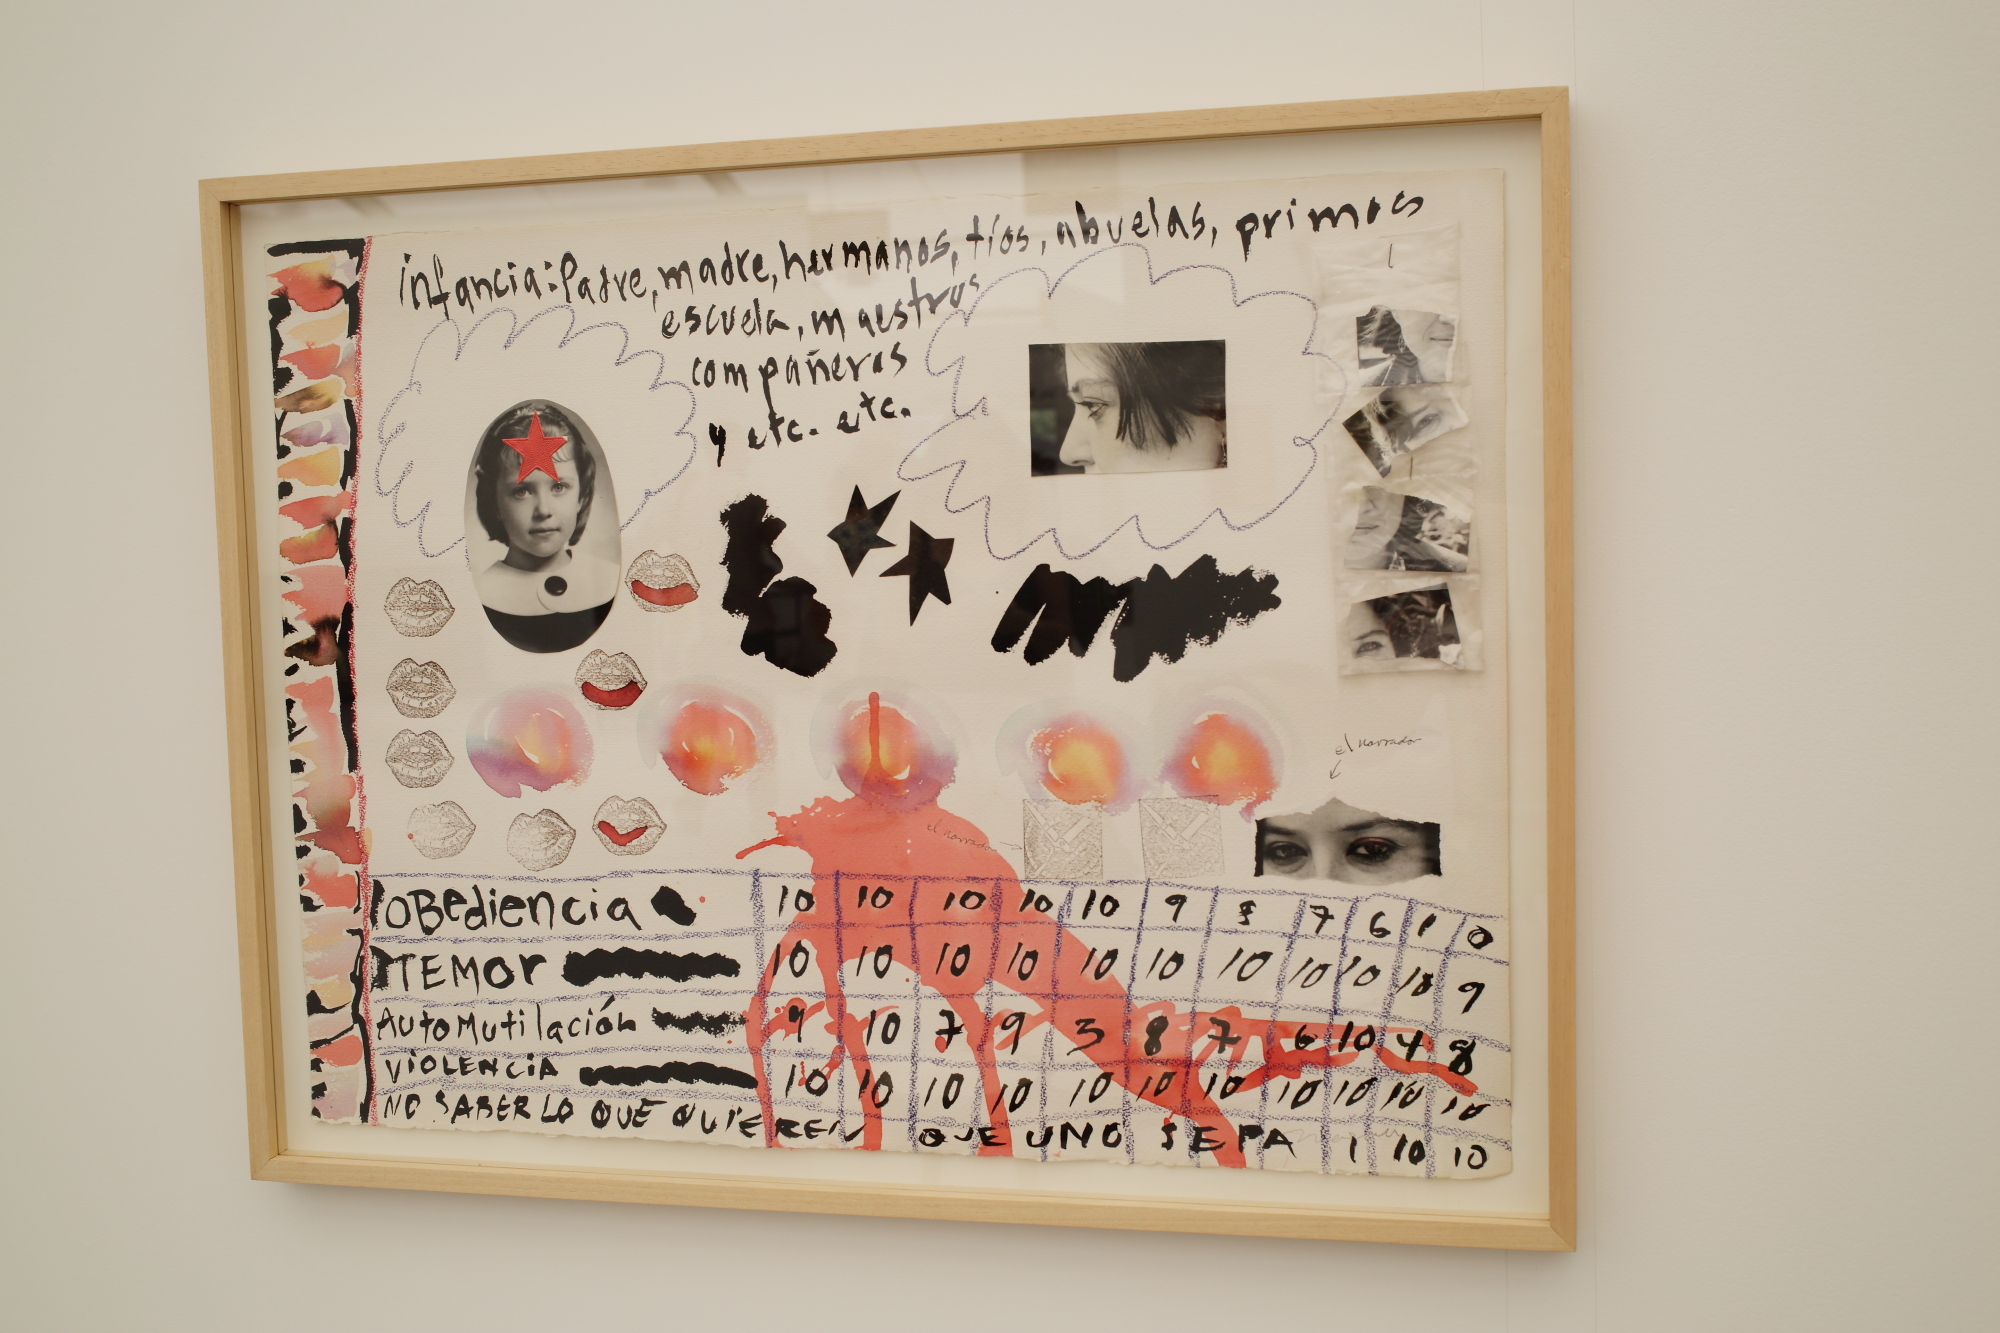 infancia: Padre, madre, hermanos, tíos, abuelas, primos
escuela, maestros
compañeros
y etc. etc.
el narrador
el narrador
OBediencia 10 10 10 10 10 9 8 7 6 1 0
TEMOR 10 10 10 10 10 10 10 10 10 10 9
AutoMutilación 9 10 7 9 3 8 7 6 10 4 8
VIOLENCIA 10 10 10 10 10 10 10 10 10 10 10
NO SABER LO QUE QUIEREN QUE UNO SEPA 1 10 10